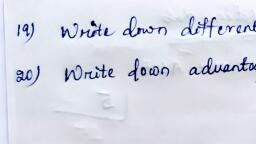 19) Write down different
20) Write down advanta